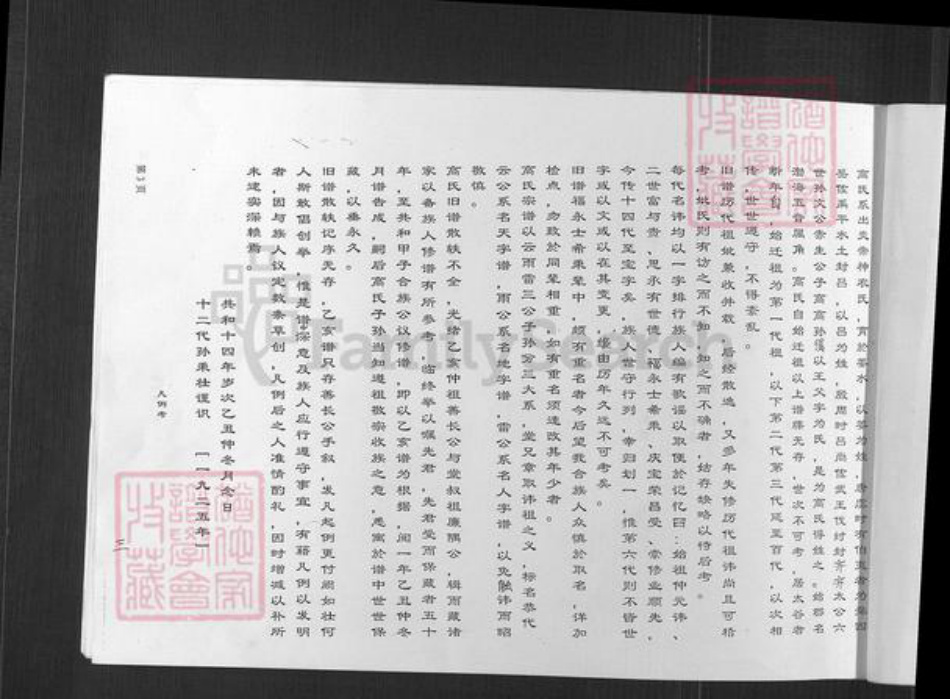 高氏系出炎帝神农氏,育于姜水,以姜为姓,唐虞时有伯夷者为秩四
岳佐禹平水土封吕,以吕为姓,殷周时吕尚佐武王伐纣封齐有太公六
世孙文公赤生公子高高孙傒以王父字为氏,是为高氏得姓之。始郡名
渤海五音属角。高氏自始迁祖以上谱牒无存,世次不可考,居太谷者
始迁祖为第一代祖,以下第二代第三代延至百代,以次相
传,世世遵守,不得紊乱。
旧谱历代祖妣兼收并载,后经散逸,又多年失修历代祖讳尚且可稽
考,妣氏则有访之而不知,知之而不确者,姑存缺略以待后考。
每代名讳均以一字排行族人编有歌谣以取便于记忆曰:始祖仲元讳、
二世富与贵、思永有世德、福永士希秉、庆宝荣昌受、常修业顺先,
今传十四代至宝字矣,族人世守行列,幸归划一,惟第六代则不皆世
字或以文或以在其变更,缘由历年久远不可考矣。
旧谱福永士希秉辈中,颇有重名者今后望我合族人众慎于取名,详加
检点,勿致于同辈相重,如有重名须速改其年少者。
高氏宗谱以云雨雷三公子孙分三大系,堂兄章取讳祖之义,标名恭代
云公系名天字谱,雨公系名地字谱,雷公系名人字谱,以免触讳而昭
敬慎。
高氏旧谱散轶不全,光绪乙亥仲祖善长公与堂叔祖廉隅公,辑而藏诸
家以备族人修谱有所参考,临终举以嘱先君,先君受而保藏者五十
年,至共和甲子合族公议修谱,即以乙亥谱为根据,阅一年乙丑仲冬
月谱告成,嗣后高氏子孙当知遵祖敬宗收族之意,悉寓于谱中世世保
藏,以垂永久。
旧谱散轶记序无存,乙亥谱只存善长公手叙,发凡起例更付阙如壮何
人斯敢倡创举,惟是谱中深意及族人应行遵守事宜,有藉凡例以发明
者,因与族人议定数条草创,凡例后之人准情酌礼,因时增减以补所
未逮实深赖焉。
共和十四年岁次乙丑仲冬月念日
十二代孙秉壮谨识 [一九二五年]
凡例考
第3页
三
FamilySearch